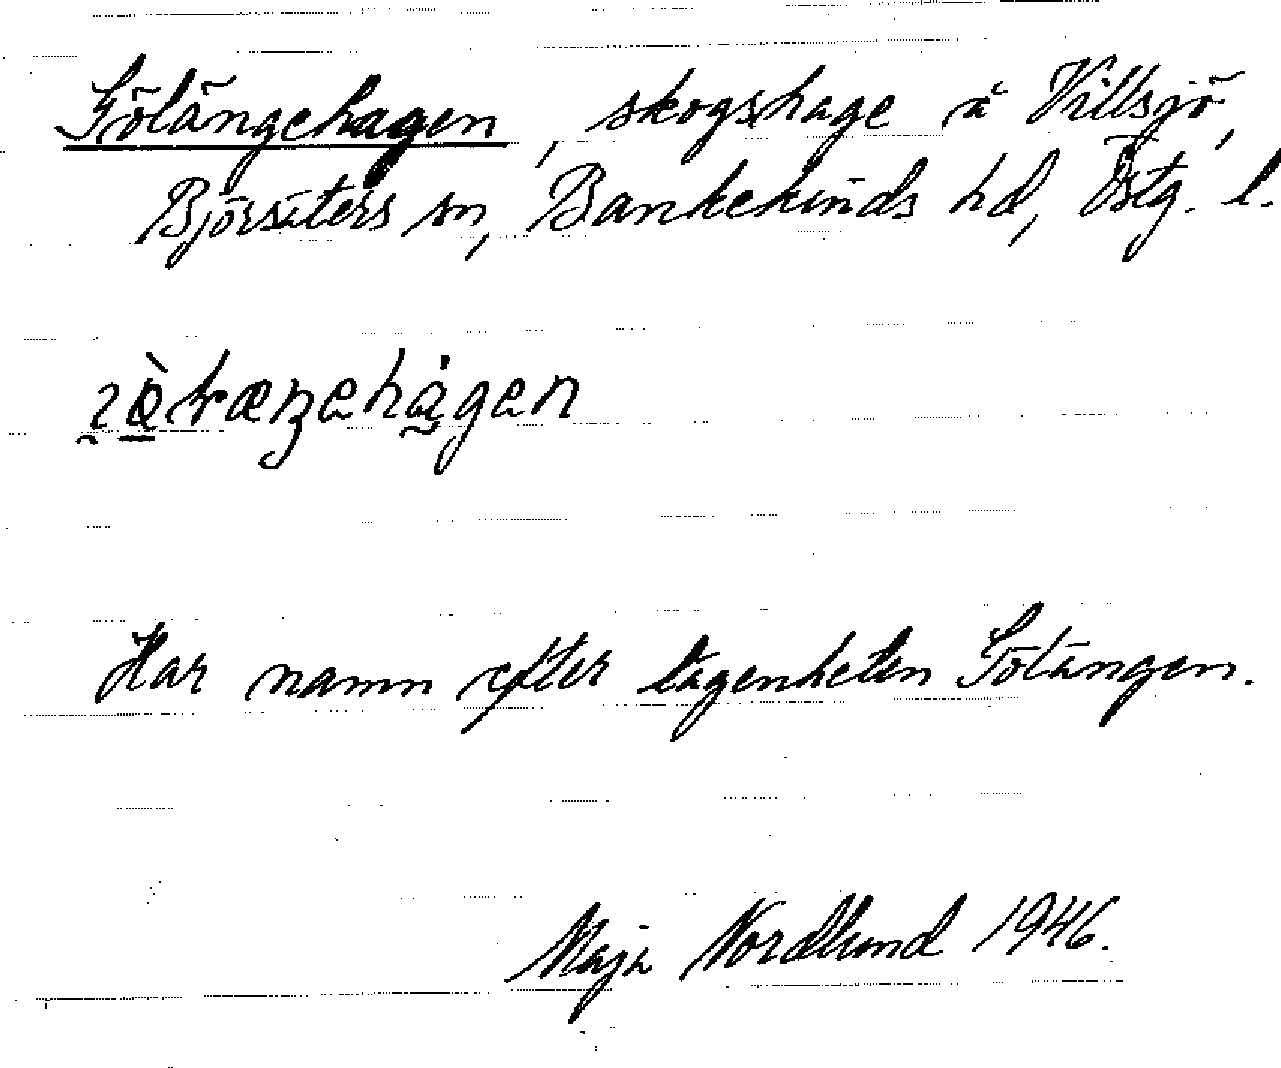 Sölängehagen, skogshage å Villsjö,
Björsäters sn, Bankekinds hd, Östg. l.
Har namn efter lägenheten Sölängen.
Maja Nordlund 1946.